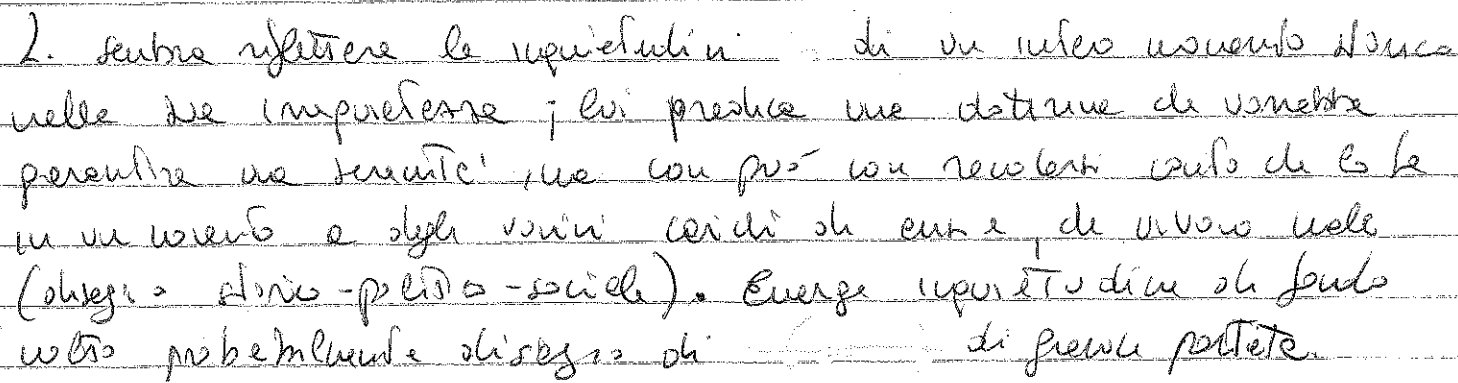 L. sembra riflettere le inquietudini di un intero momento storico
nelle sue irrequietezze; lui predica una dottrina che vorrebbe
garantire una serenità, ma non può non rendersi conto che lo fa
in un momento e degli uomini carichi di ansie, che vivono male
(disagio storico-politico-sociale). Emerge inquietudine di fondo
molto probabilmente disagio di di grande portata.